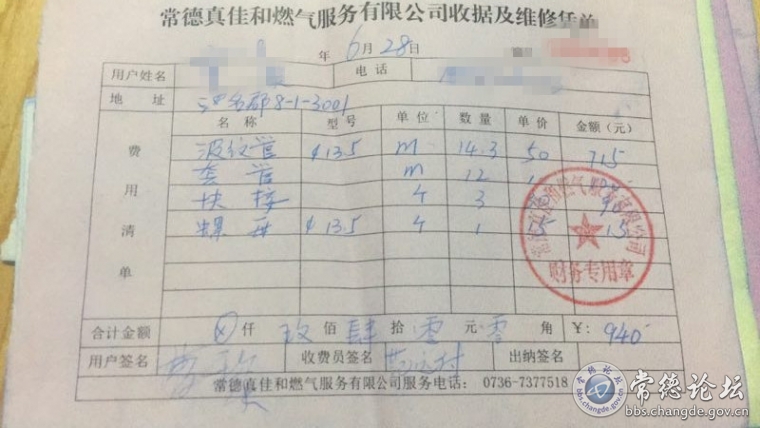 常德真佳和燃气服务有限公司收据及维修凭单
年 6月28日
用户姓名 电话
地址 8-1-3001
名称 型号 单位 数量 单价 金额(元)
费用清单
波纹管 ¢13.5 m 14.3 50 715
套管 m 12
快接 个 3
螺母 ¢13.5 个 1 15 15
财务专用章
合计金额 ⊗仟 玖佰 肆拾 零元 零角 ¥: 940
用户签名 收费员签名 出纳签名
常德真佳和燃气服务有限公司服务电话: 0736-7377518
常德论坛
bbs.changde.gov.cn